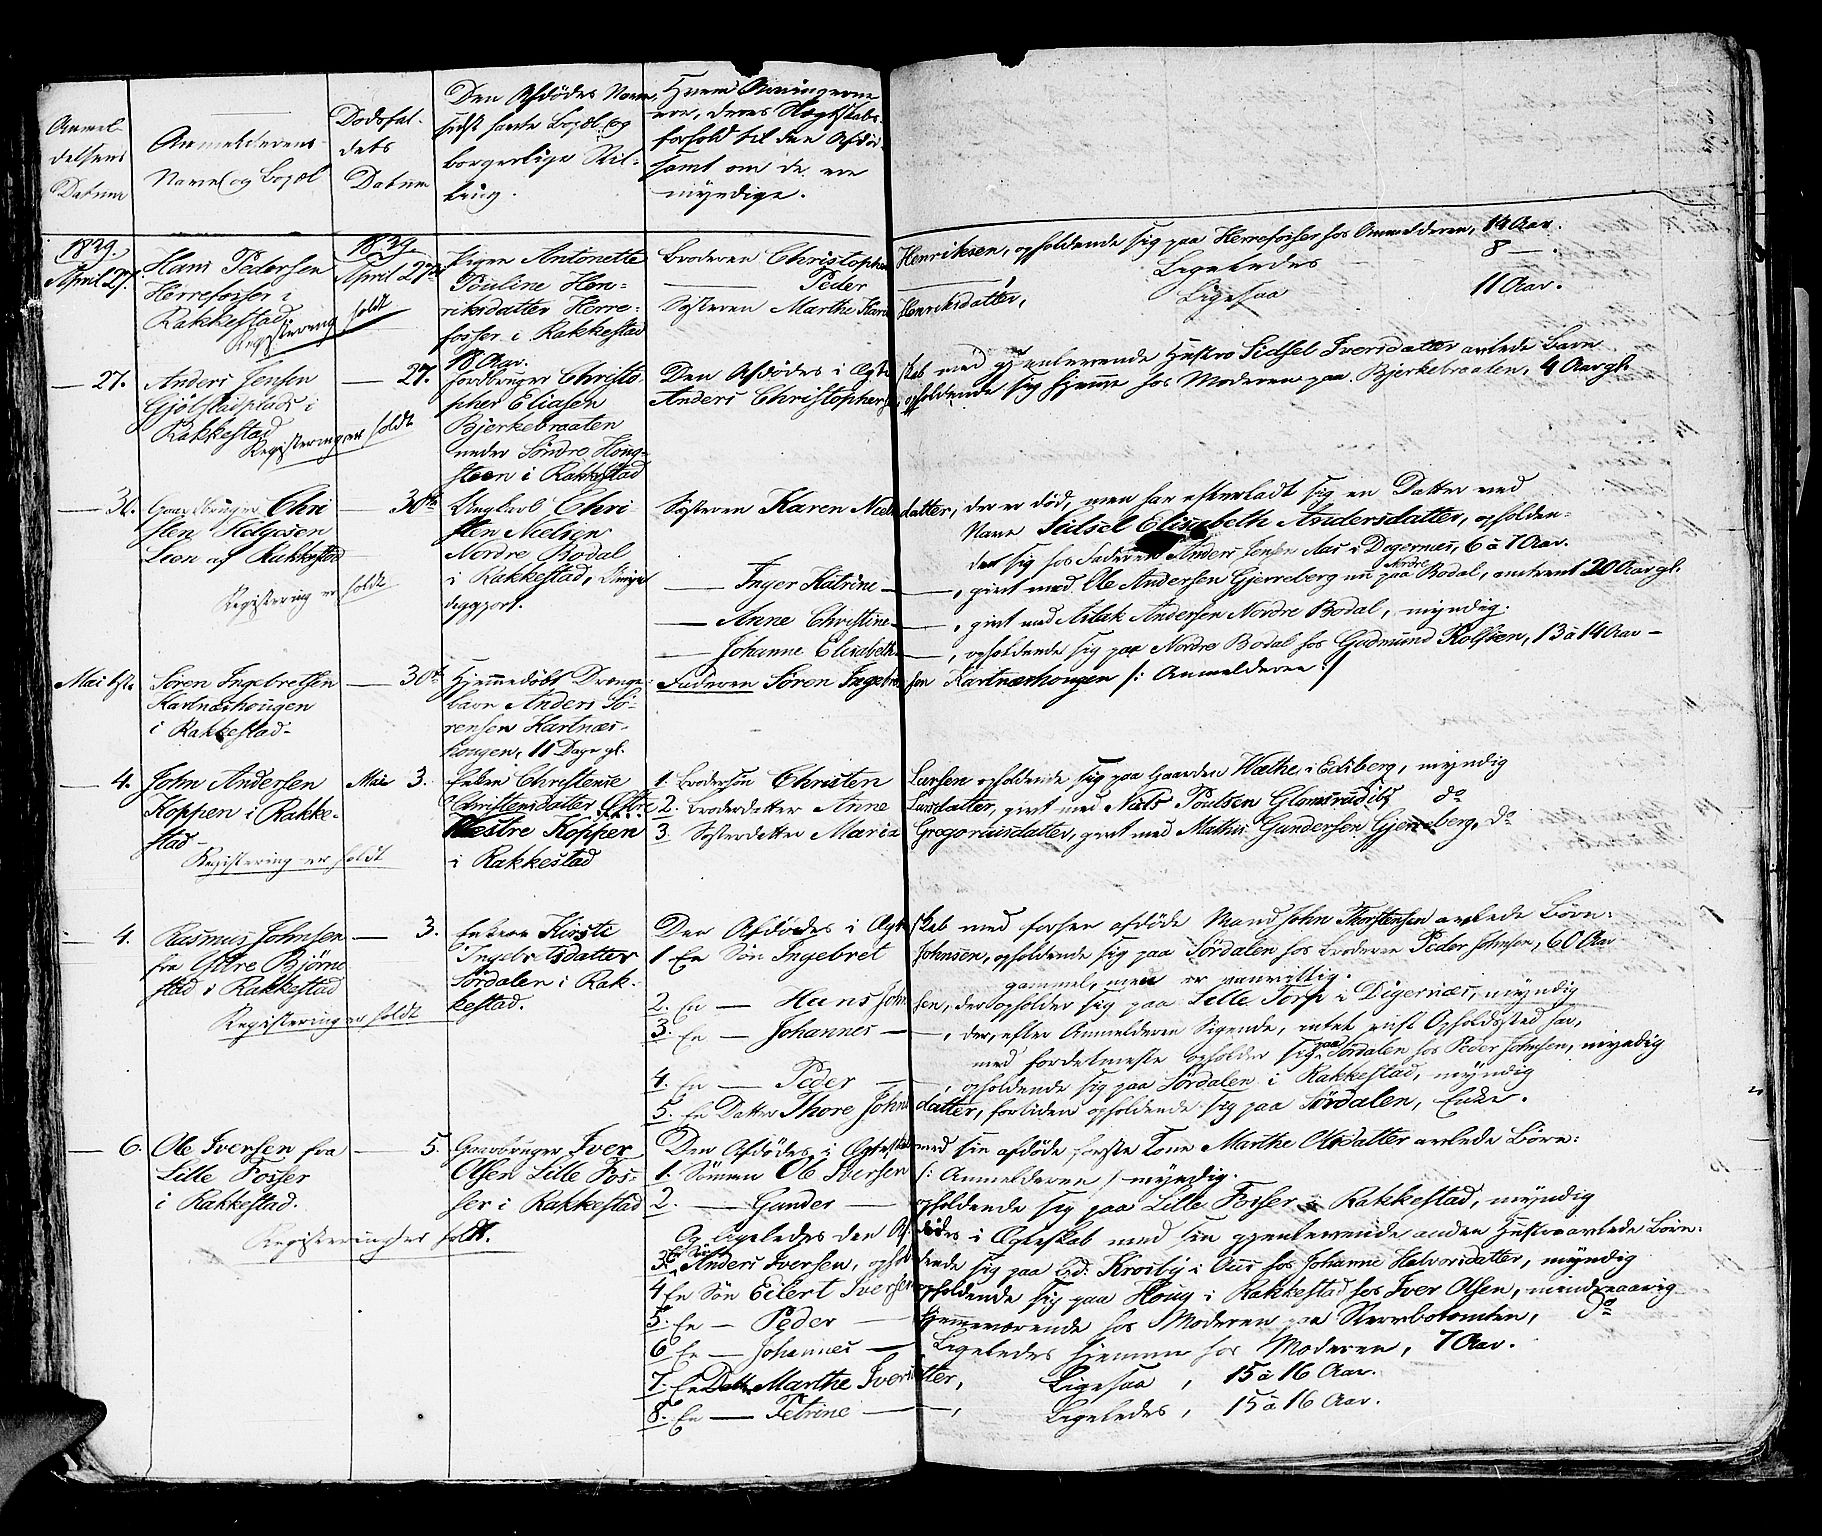 Anmel-
delsens
Datum
Anmelderens
Navn og Bopæl
Dødsfal-
dets
Datum
Den Afdødes Navn,
sidst havte Bopæl og
borgerlige Stil-
ling.
Hvem Arvingerne
ere, deres Slægtskabs-
forhold til den Afdøde
samt om de ere
myndige.
1839.
April 27.
Hans Pedersen
Herrefosser i
Rakkestad.
Registrering holdt
1839
April 27de
Pigen Antonette
Pouline Hen-
riksdatter Herre-
fosser i Rakkestad
18 Aar.
Broderen Christopher Henriksen, opholdende sig paa Herrefosser hos Anmelderen, 14 Aar.
— Peder — Ligeledes 8 —.
Søsteren Marthe Karie Henriksdatter, Ligesaa 11 Aar.
— 27.
Anders Jensen
Gjølstadplads i
Rakkestad
Registrering er holdt
— 27.
Jordbruger Christo-
pher Eliasen
Bjerkebraaten
under Søndre Houg-
steen i Rakkestad
Den Afdødes i Ægteskab med gjenlevende Hustro Sidsel Iversdatter avlede Barn
Anders Christophersen, opholdende sig hjemme hos Moderen paa Bjerkebraaten, 4 Aar gl.
— 30.
Gaardbruger Chri-
sten Helgesen
Leen af Rakkestad
Registrering er holdt
— 30te
Ungkarl Chri-
sten Nielsen
Nordre Bodal
i Rakkestad,
Søsteren Karen Nielsdatter, der er død, men har efterladt sig en Datter ved
Navn Sidsel Elisabeth Andersdatter, opholden-
det sig hos Faderen Anders Jensen Aas i Degernæs, 6 à 7 Aar.
— Inger Katrine — , givt med Ole Andersen Gjerreberg nu paa Nordre Bodal, omtrent 20 Aar gl.
— Anne Christine — , givt med Aslak Andersen Nordre Bodal, myndig.
— Johanne Elisabeth — , opholdende sig paa Nordre Bodal hos Gudmund Rolfsen, 13 à 14 Aar —
Mai 1ste
Søren Ingebretsen
Kartnæshougen
i Rakkestad.
— 30te
Hjemmedøbt Drenge-
barn Anders Sø-
rensen Kartnæs-
hougen, 11 Dage gl.
Faderen Søren Ingebretsen Kartnæshougen /: Anmelderen :/
— 4.
John Andersen
Koppen i Rakke-
stad.
Registrering er holdt
Mai 3.
Enken Christense
Christensdatter Østre
Vestre Koppen
i Rakkestad
1. Brodersøn Christen Larsen opholdende sig paa Gaarden Wæthe i Edsberg, myndig
2. Broderdatter Anne Larsdatter, givt med Niels Poulsen Glomsrudits do
3. Søsterdatter Maria Gregoriusdatter, givt med Mathis Gundersen Gjerreberg, do
— 4.
Rasmus Johnsen
fra Østre Bjørne-
stad i Rakkestad
Registrering er holdt
— 3.
Enken Kirsti
Ingebretsdatter
Sørdalen i Rak-
kestad.
Den Afdødes i Ægteskab med forhen afdøde Mand John Thorstensen avlede Børn:
1 En Søn Ingebret Johnsen, opholdende sig paa Sørdalen hos Broderen Peder Johnsen, 60 Aar
gammel, men er vanvittig.
2. En — Hans Johnsen, der opholder sig paa Lille Torp i Digernæs, myndig
3. En — Johannes — , der, efter Anmelderen Sigende, intet vist Opholdssted har,
med fordetmeste opholder sig paa Sørdalen hos Peder Johnsen, myndig
4. En — Peder — , opholdende sig paa Sørdalen i Rakkestad, myndig
5. En Datter Thore Johnsdatter, fortiden opholdende sig paa Sørdalen, Enke.
— 6.
Ole Iversen fra
Lille Fosser
i Rakkestad.
Registrering er holdt.
— 5.
Gaardbruger Iver
Olsen Lille Fos-
ser i Rakkestad
Den Afdødes i Ægteskab med sin afdøde første Kone Marthe Olsdatter avlede Børn:
1. Sønnen Ole Iversen /: Anmelderen / myndig.
2. — Gunder — opholdende sig paa Lille Fosser i Rakkestad, myndig
Og ligeledes den Afdødes i Ægteskab med sin gjenlevende anden Hustro avlede Børn:
3. En Søn Anders Iversen, opholdende sig paa Krosby i Aas hos Johanne Halvorsdatter, myndig
4 En Søn Eilert Iversen opholdende sig paa Houg i Rakkestad hos Iver Olsen, mindreaarig
5. En — Peder — Hjemmeværende hos Moderen paa do
6 En — Johannes — Ligeledes hjemme hos Moderen, 7 Aar.
7. En Datter Marthe Iversdatter, Ligesaa , 15 à 16 Aar.
8. En — Petrine — , Ligeledes , 15 à 16 Aar.